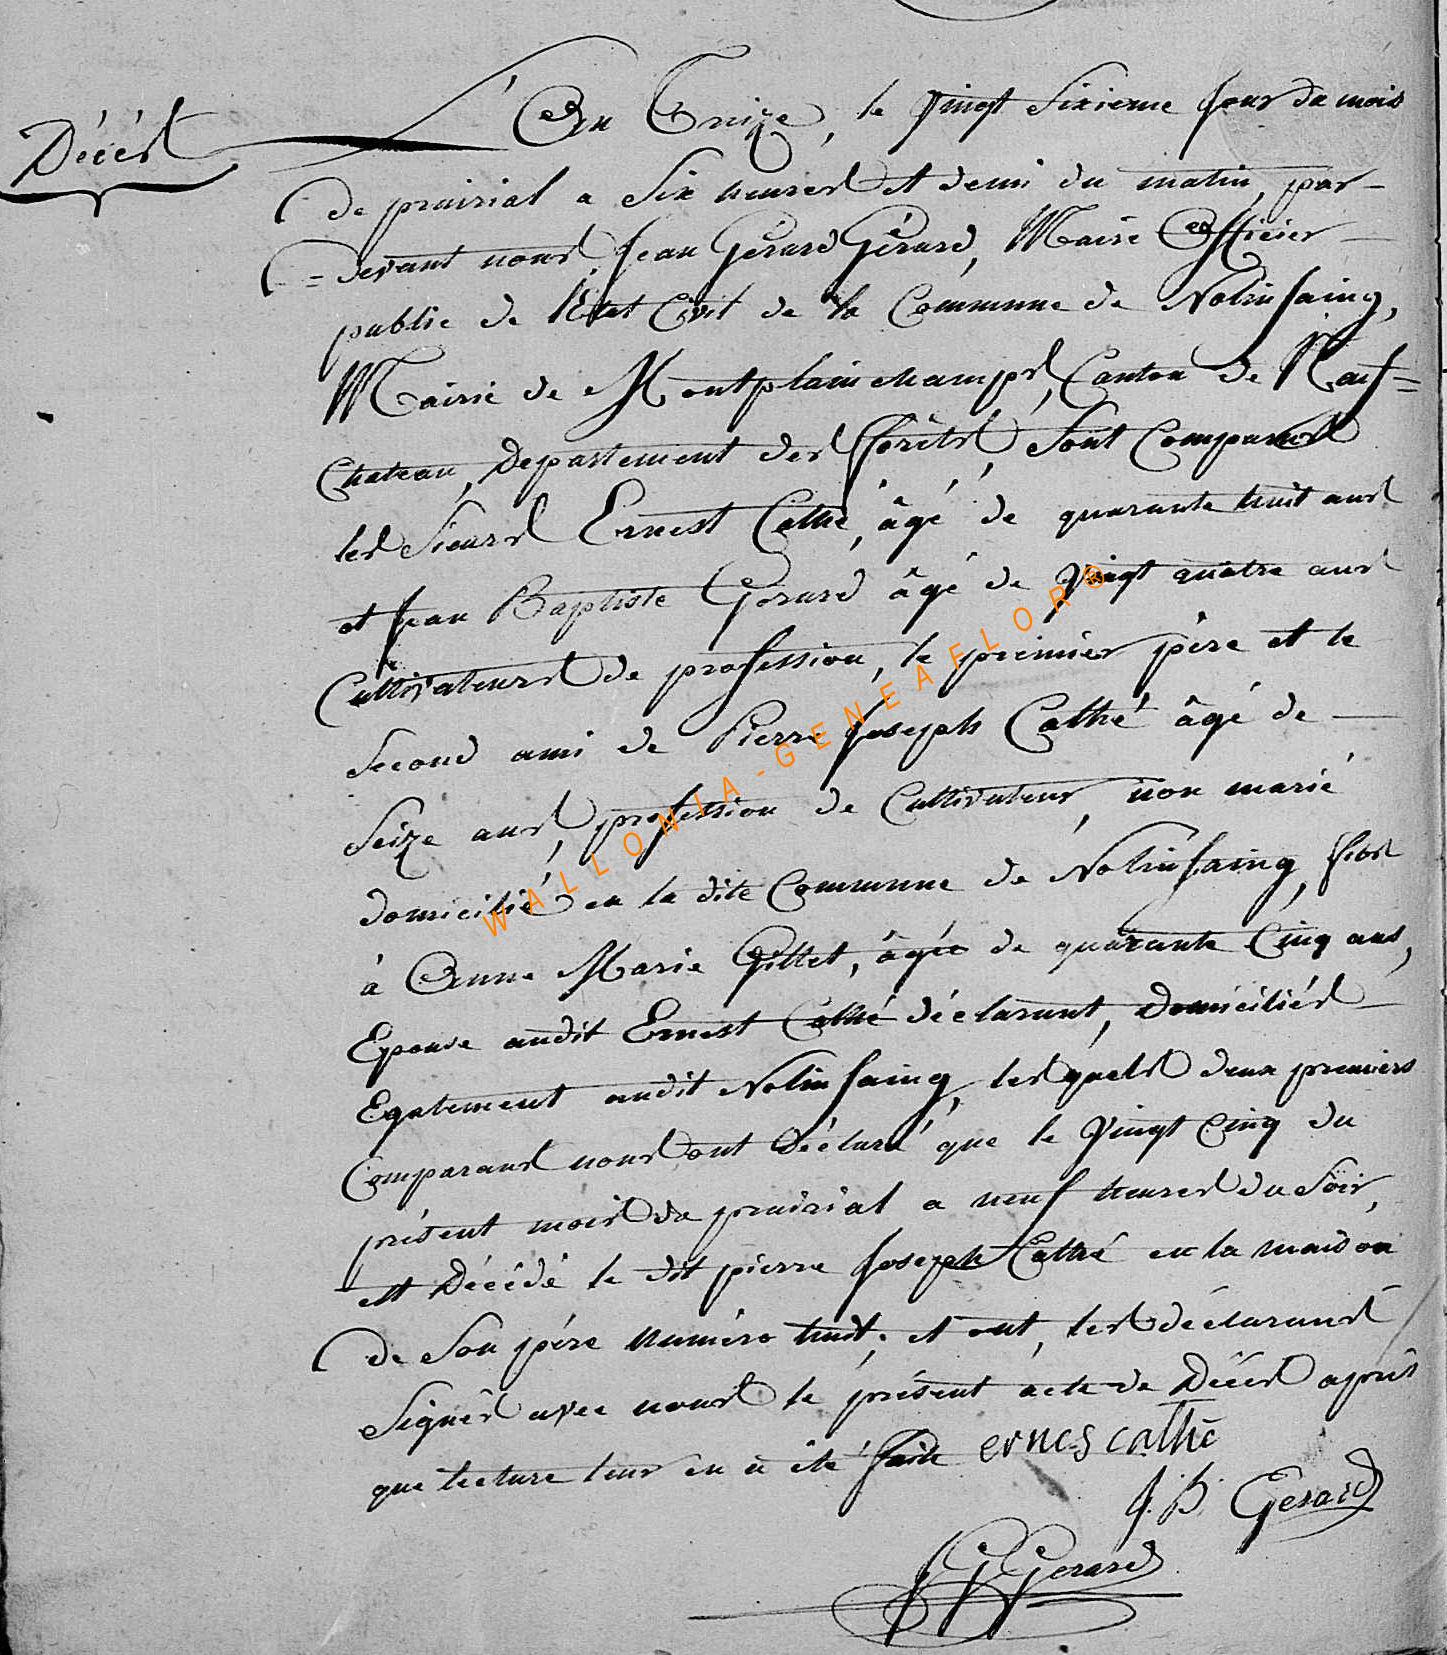 Décès
L'An Treize, le vingt sixieme jour du mois
de prairial a six heures et demi du matin, par-
=devant nous Jean Gérard Gérard, Maire officier
public de l'Etat Civil de la Commune de Nolinfaing,
Mairie de Montplainchamps, Canton de Neuf=
Chateau, Departement des forêts, sont Comparus
les sieurs Ernest Cathé, âgé de quarante huit ans
et Jean Baptiste Gerard âgé de vingt quatre ans
Cultivateurs de profession, le premier père et le
second ami de Pierre Joseph Cathé âgé de
seize ans, profession de Cultivateur, non marié
domicilié en la dite Commune de Nolinfaing, fils
à Anne Marie Gillet, âgée de quarante Cinq ans,
Epouse audit Ernest Cathé déclarant, domiciliés
Egalement audit Nolinfaing, lesquels deux premiers
Comparans nous ont Déclaré que le vingt Cinq du
présent mois de prairial a neuf heures du soir,
est Décédé le dit pierre Joseph Cathé en la maison
de Son père numéro huit, et ont, les déclarans
Signés avec nous le présent acte de Décès après
que lecture leur en a été faite ernes cathé
J. B. Gerard
J G Gerard
WALLONIA-GENEAFLORO